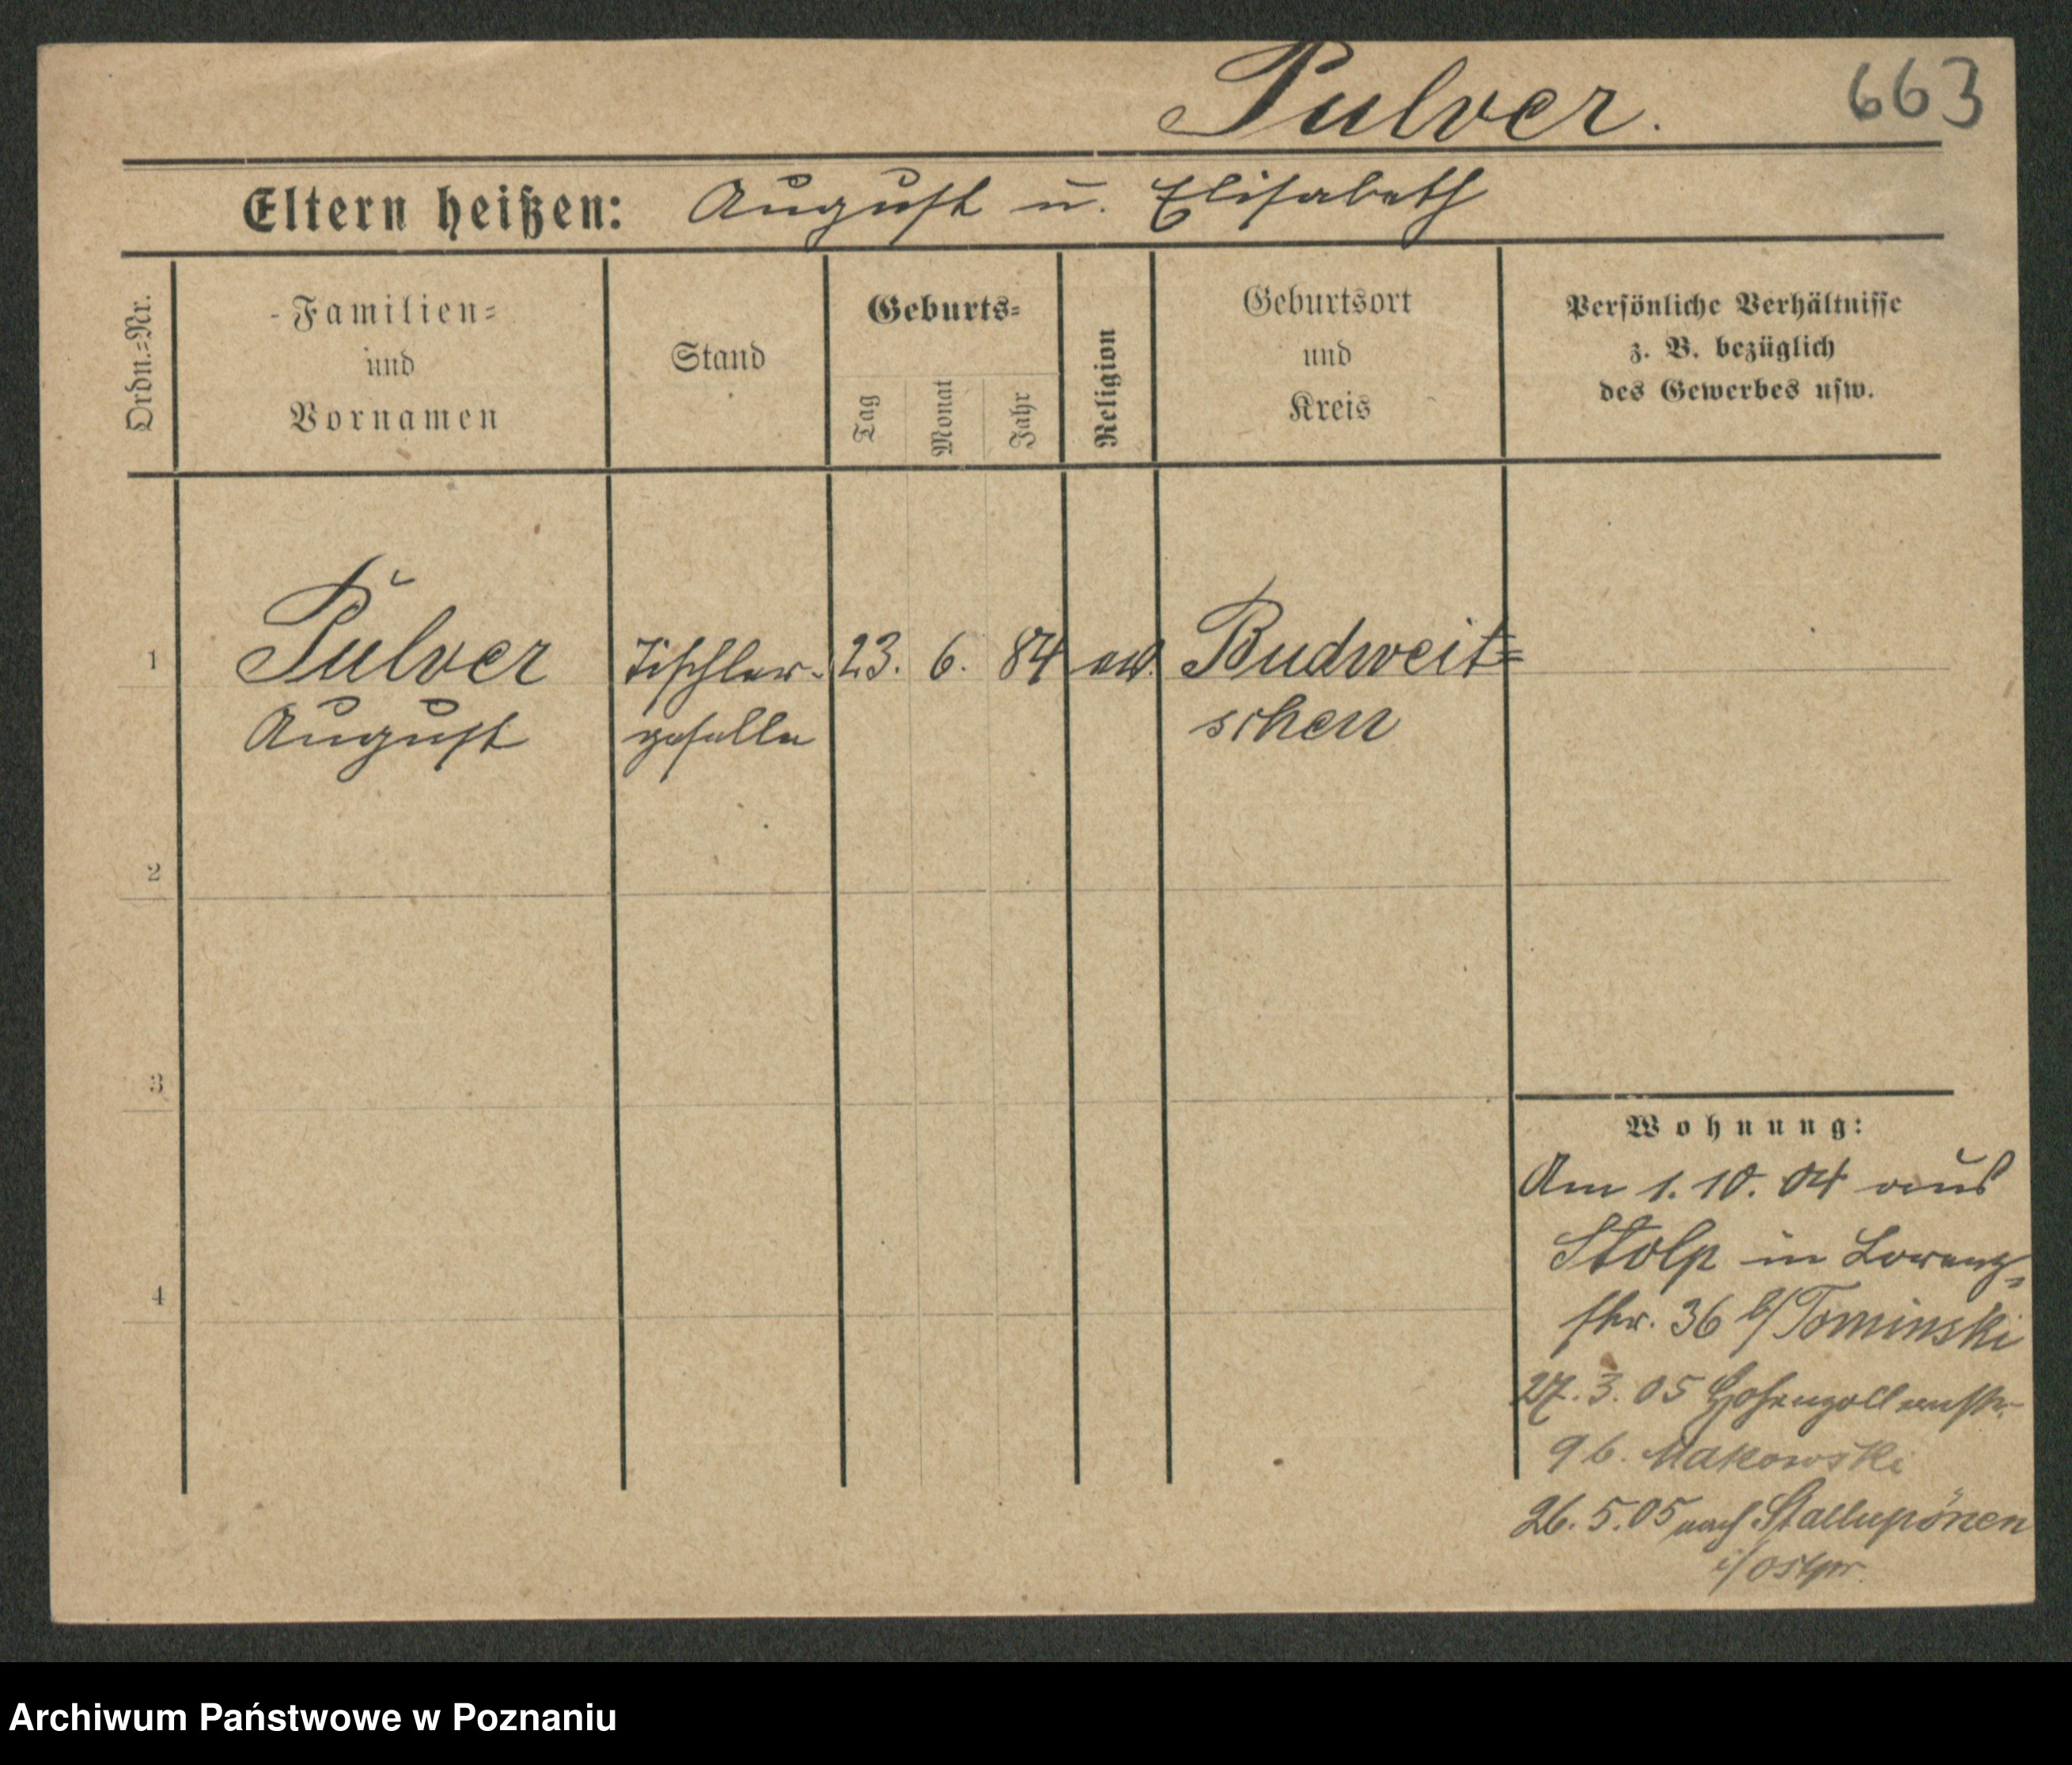 Pulver.
663
Eltern heißen: August u. Elisabeth
Ordn.=Nr.
Familien=
und
Vornamen
Stand
Geburts=
Tag
Monat
Jahr
Religion
Geburtsort
und
Kreis
Persönliche Verhältnisse
z. B. bezüglich
des Gewerbes usw.
1 Pulver Tischler- 23. 6. 84 ev. Budweit=
August geselle schen
2
3
4
Wohnung:
Am 1. 10. 04 aus
Stolp in Lorenz=
str. 36 b/ Tominski
27. 3. 05 Hohenzollernstr.
9 b. Makowski
26. 5. 05 nach Stallupönen
i/ Ostpr.
Archiwum Państwowe w Poznaniu